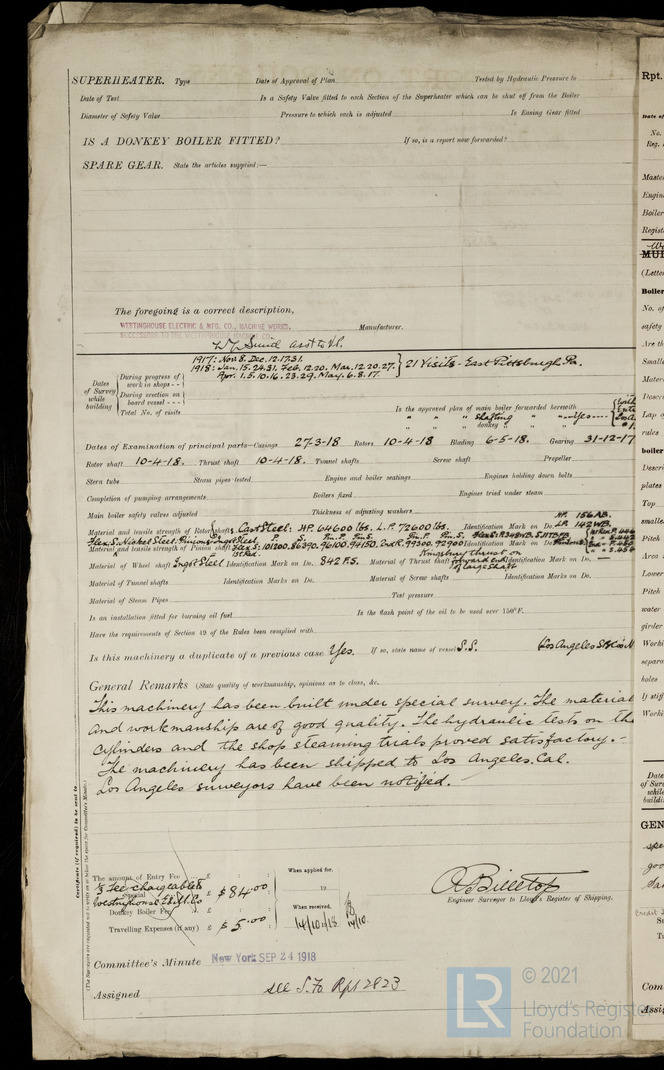 SUPERHEATER. Type Date of Approval of Plan Tested by Hydraulic Pressure to
Date of Test Is a Safety Valve fitted to each Section of the Superheater which can be shut off from the Boiler
Diameter of Safety Valve Pressure to which each is adjusted Is Easing Gear fitted
IS A DONKEY BOILER FITTED? If so, is a report now forwarded?
SPARE GEAR. State the articles supplied:—
The foregoing is a correct description,
WESTINGHOUSE ELECTRIC & MFG. CO., MACHINE WORKS, Manufacturer.
SUCCESSORS TO THE WESTINGHOUSE MACHINE CO.
Asst to V.P.
Dates of Survey while building
During progress of work in shops - -
1917: Nov. 8. Dec. 12.17.31.
1918: Jan. 15.24.31. Feb. 12.20. Mar. 12.20.27.
Apr. 1.5.10.16.23.29. May. 6.8.17.
21 Visits - East Pittsburgh, Pa.
During erection on board vessel - - -
Total No. of visits
Is the approved plan of main boiler forwarded herewith
" " " shafting " " Yes
" " " donkey " "
Dates of Examination of principal parts—Casings 27-3-18 Rotors 10-4-18 Blading 6-5-18. Gearing 31-12-17
Rotor shaft 10-4-18. Thrust shaft 10-4-18. Tunnel shafts Screw shaft Propeller
Stern tube Steam pipes tested Engine and boiler seatings Engines holding down bolts
Completion of pumping arrangements Boilers fixed Engines tried under steam
Main boiler safety valves adjusted Thickness of adjusting washers
Material and tensile strength of Rotor shafts Cast Steel: H.P. 64600 lbs. L.P. 72600 lbs. Identification Mark on Do. HP. 156 AB. LP. 142 WB.
Material and tensile strength of Pinion shaft Identification Mark on Do.
Material of Wheel shaft Ingot Steel Identification Mark on Do. 842 F.S. Material of Thrust shaft Kingsbury thrust on forward end of large shaft Identification Mark on Do. —
Material of Tunnel shafts Identification Marks on Do. Material of Screw shafts Identification Marks on Do.
Material of Steam Pipes Test pressure
Is an installation fitted for burning oil fuel Is the flash point of the oil to be used over 150°F.
Have the requirements of Section 49 of the Rules been complied with
Is this machinery a duplicate of a previous case Yes. If so, state name of vessel S.S. (Los Angeles
General Remarks (State quality of workmanship, opinions as to class, &c.
This machinery has been built under special survey. The material
and workmanship are of good quality. The hydraulic tests on the
cylinders and the shop steaming trials proved satisfactory.-
The machinery has been shipped to Los Angeles, Cal.
Los Angeles surveyors have been notified.
Certificate (if required) to be sent to
(The Surveyors are requested not to write on or below the space for Committee's Minute.)
The amount of Entry Fee £ : :
⅓ Fee chargeable to
Special £ $84.00
Westinghouse El. M. Co
Donkey Boiler Fee £ : :
Travelling Expenses (if any) £ $5.00
When applied for,
19
When received,
14/10/18
Engineer Surveyor to Lloyd's Register of Shipping.
Committee's Minute New York SEP 24 1918
Assigned see S.Fo Rpt 2823
© 2021
LR
Lloyd's Register
Foundation
Rpt.